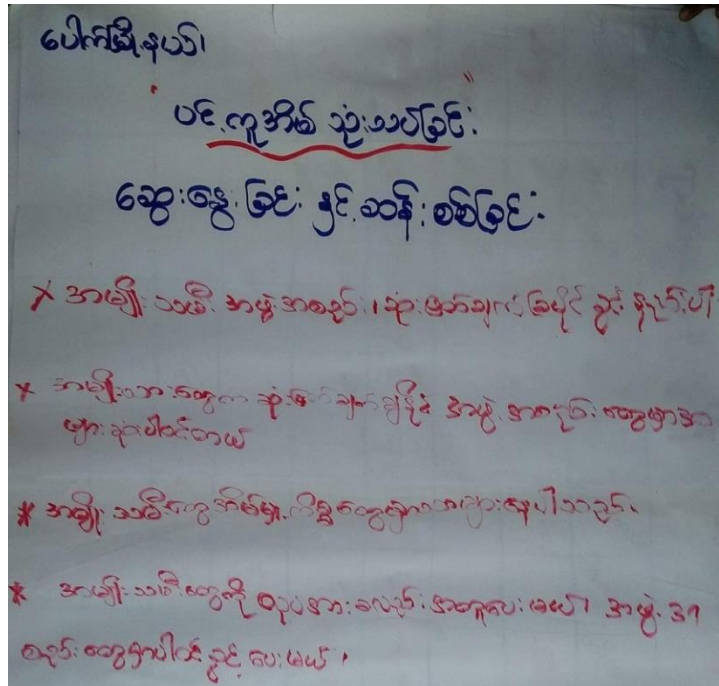 ပေါက်မြို့နယ်၊
"ပင့်ကူအိမ် သုံးသပ်ခြင်း"
ဆွေးနွေးခြင်း နှင့် ဆန်းစစ်ခြင်း
× အမျိုးသမီး အဖွဲ့အစည်း၊ ဆုံးဖြတ်ချက်ခြပိုင်ခွင့် နည်းပါ
× အမျိုးသားတွေက ဆုံးဖြတ်ချက်ချနိုင်တဲ့ အဖွဲ့အစည်းတွေမှာအ
များစုပါဝင်တယ်
* အမျိုးသမီးတွေအိမ်မှု့ကိစ္စတွေမှာသာများနေပါသည်၊
* အမျိုးသမီးတွေကို လုပ်အားခလည်းအတူပေးမယ်၊ အဖွဲ့အ
စည်းတွေမှာပါဝင်ခွင့်ပေးမယ်၊